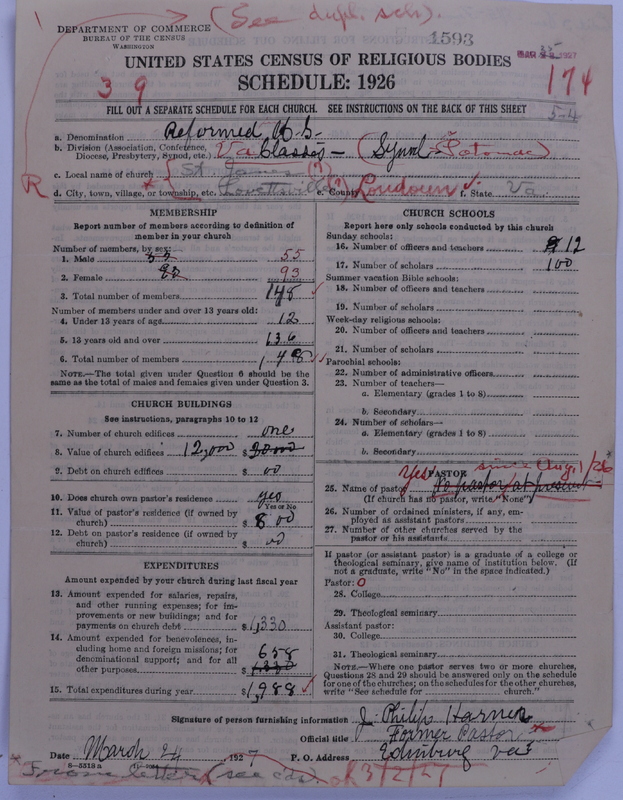 (See dupl. sch).
DEPARTMENT OF COMMERCE
BUREAU OF THE CENSUS
WASHINGTON
1593
UNITED STATES CENSUS OF RELIGIOUS BODIES
SCHEDULE: 1926
3 9
174
FILL OUT A SEPARATE SCHEDULE FOR EACH CHURCH. SEE INSTRUCTIONS ON THE BACK OF THIS SHEET
5-4
a. Denomination Reformed U.S.
b. Division (Association, Conference, Diocese, Presbytery, Synod, etc.) Va Classis – (Synod – Potomac)
R
c. Local name of church St. James (?)
d. City, town, village, or township, etc. Lovettsville (?) e. County Loudoun f. State Va
MEMBERSHIP
Report number of members according to definition of member in your church
Number of members, by sex:
1. Male 55 55
2. Female 93 93
3. Total number of members 148
Number of members under and over 13 years old:
4. Under 13 years of age 12
5. 13 years old and over 136
6. Total number of members 148
NOTE.—The total given under Question 6 should be the same as the total of males and females given under Question 3.
CHURCH BUILDINGS
See instructions, paragraphs 10 to 12
7. Number of church edifices one
8. Value of church edifices 12,000 $ 20000
9. Debt on church edifices $ 00
10. Does church own pastor's residence yes
Yes or No
11. Value of pastor's residence (if owned by church) $ 800
12. Debt on pastor's residence (if owned by church) $ 00
EXPENDITURES
Amount expended by your church during last fiscal year
13. Amount expended for salaries, repairs, and other running expenses; for improvements or new buildings; and for payments on church debt $ 1,330
14. Amount expended for benevolences, including home and foreign missions; for denominational support; and for all other purposes 658 $ 1330
15. Total expenditures during year $ 1,988
CHURCH SCHOOLS
Report here only schools conducted by this church
Sunday schools:
16. Number of officers and teachers 12
17. Number of scholars 100
Summer vacation Bible schools:
18. Number of officers and teachers
19. Number of scholars
Week-day religious schools:
20. Number of officers and teachers
21. Number of scholars
Parochial schools:
22. Number of administrative officers
23. Number of teachers—
a. Elementary (grades 1 to 8)
b. Secondary
24. Number of scholars—
a. Elementary (grades 1 to 8)
b. Secondary
PASTOR
Yes since Aug. 1/26
25. Name of pastor No pastor at present
(If church has no pastor, write "None")
26. Number of ordained ministers, if any, employed as assistant pastors
27. Number of other churches served by the pastor or his assistants
If pastor (or assistant pastor) is a graduate of a college or theological seminary, give name of institution below. (If not a graduate, write "No" in the space indicated.)
Pastor: O
28. College
29. Theological seminary
Assistant pastor:
30. College
31. Theological seminary
NOTE.—Where one pastor serves two or more churches, Questions 28 and 29 should be answered only on the schedule for one of the churches; on the schedules for the other churches, write "See schedule for church."
Signature of person furnishing information J. Philip Harner
Official title Former Pastor
Date March 24 1927 P. O. Address Edinburg Va
8—5318 a
* From letter (see
3/2/27